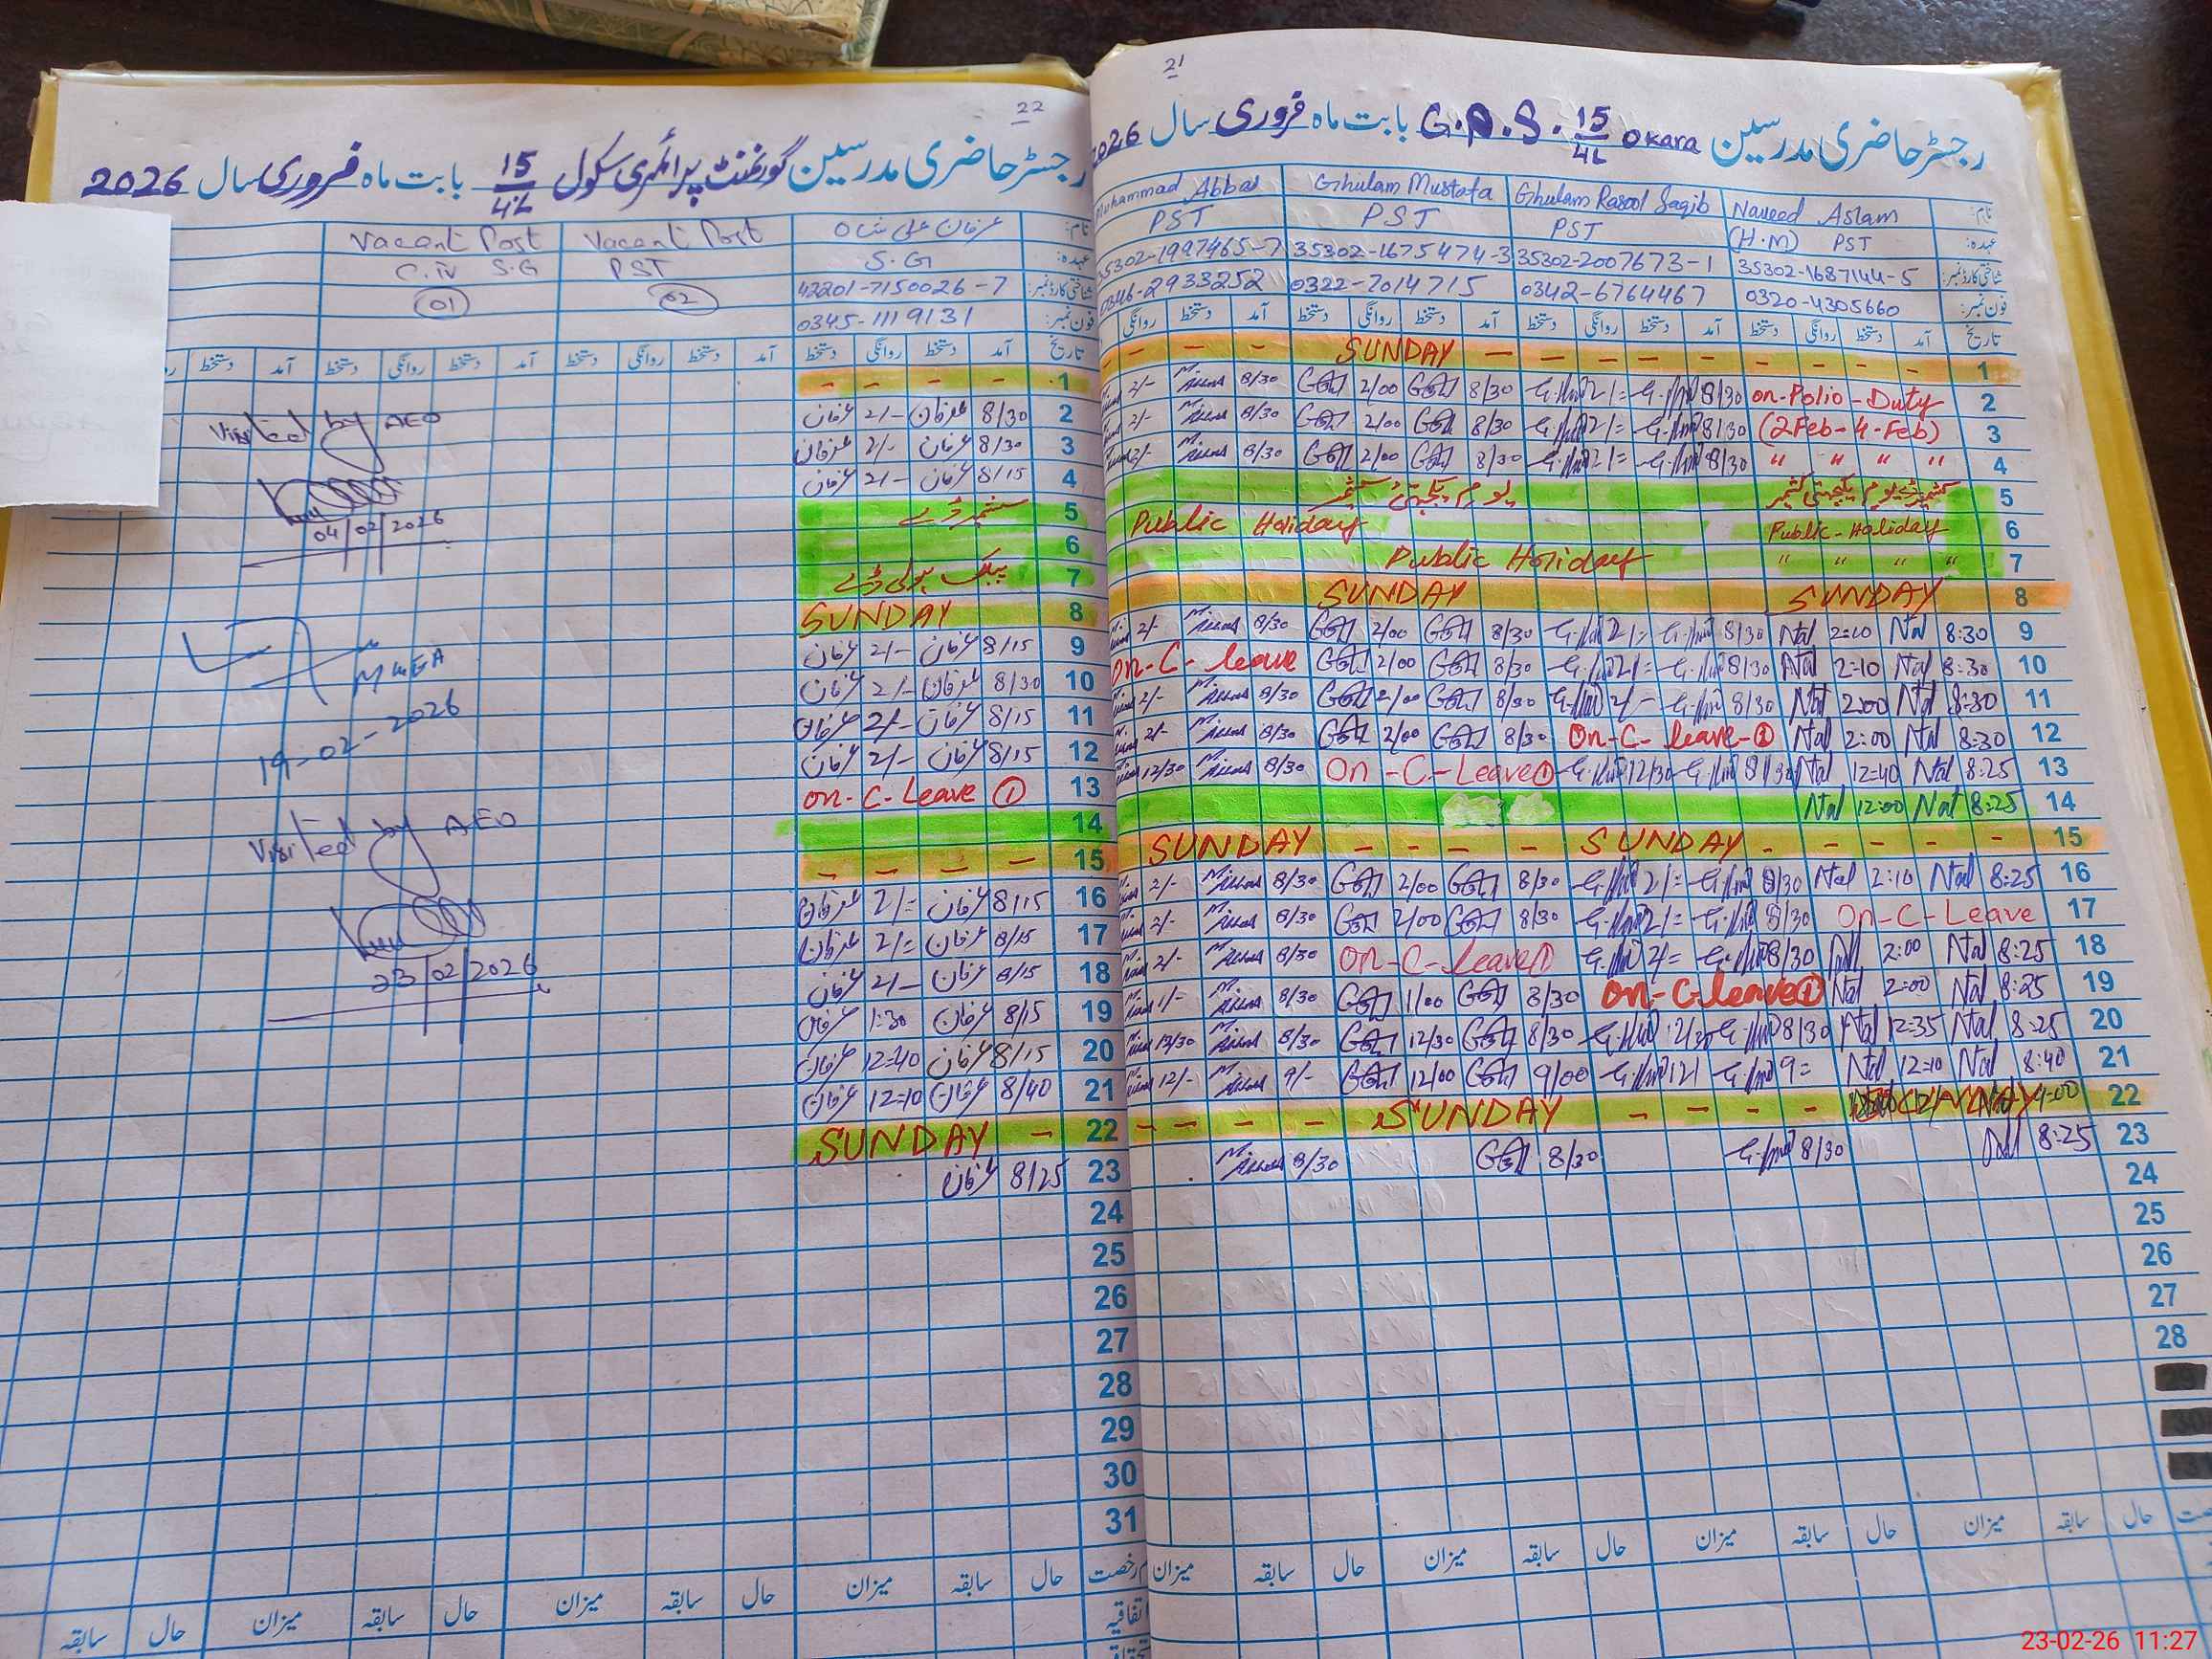 21
رجسٹر حاضری مدرسین G.P.S. 15/4L Okara بابت ماہ فروری سال 2026
نام: Naveed Aslam Ghulam Rasool Saqib Ghulam Mustafa Muhammad Abbas
عہدہ: (H.M) PST PST PST PST
شناختی کارڈ نمبر: 35302-1687144-5 35302-2007673-1 35302-1675474-3 35302-1997465-7
فون نمبر: 0320-4305660 0342-6764467 0322-7014715 0346-2933252
تاریخ آمد دستخط روانگی دستخط آمد دستخط روانگی دستخط آمد دستخط روانگی دستخط آمد دستخط روانگی
1 - - - - - - - - - SUNDAY - - -
2 on-Polio-Duty 8/30 2/= 8/30 2/00 8/30 2/-
3 (2Feb-4-Feb) 8/30 2/= 8/30 2/00 8/30 2/-
4 " " " " 8/30 2/= 8/30 2/00 8/30 2/-
5 کشمیر ڈے یوم یکجہتی کشمیر یوم یکجہتی کشمیر
6 Public-Holiday Public Holiday
7 " " " " Public Holiday
8 SUNDAY SUNDAY
9 8:30 Nal 2:10 Nal 8/30 2/= 8/30 2/00 8/30 2/-
10 8:30 Nal 2:10 Nal 8/30 2/= 8/30 2/00 on-C-leave
11 8:30 Nal 2:00 Nal 8/30 2/- 8/30 2/00 8/30 2/-
12 8:30 Nal 2:00 Nal On-C-leave 8/30 2/00 8/30 2/-
13 8:25 Nal 12:40 Nal 8/30 12/30 On-C-Leave ① 8/30 12/30
14 8:25 Nal 12:00 Nal
15 - - - - - SUNDAY - - - - SUNDAY
16 8:25 Nal 2:10 Nal 8/30 2/= 8/30 2/00 8/30 2/-
17 On-C-Leave 8/30 2/= 8/30 2/00 8/30 2/-
18 8:25 Nal 2:00 8/30 2/= On-C-leave ① 8/30 2/-
19 8:25 Nal 2:00 Nal on-C-leave 8/30 1/00 8/30 1/-
20 8:25 Nal 12:35 Nal 8/30 12/30 8/30 12/30 8/30
21 8:40 Nal 12:10 Nal 9= 12/ 9/00 12/00 9/- 12/-
22 SUNDAY - - - - SUNDAY - - - - -
23 8:25 8/30 8/30 8/30
24
25
26
27
28
حال سابقہ میزان حال سابقہ میزان حال سابقہ میزان حال سابقہ میزان
22
رجسٹر حاضری مدرسین گورنمنٹ پرائمری سکول 15/4L بابت ماہ فروری سال 2026
نام: عرفان علی شاہ Vacant Post Vacant Post
عہدہ: S.G PST C.IV S.G
شناختی کارڈ نمبر: 42201-7150026-7 02 01
فون نمبر: 0345-1119131
تاریخ آمد دستخط روانگی دستخط آمد دستخط روانگی دستخط آمد دستخط روانگی دستخط آمد دستخط
1 - - - -
2 8/30 عرفان 2/- عرفان
3 8/30 عرفان 2/- عرفان
4 8/15 عرفان 2/- عرفان
5 کشمیر ڈے
6
7 پبلک ہولی ڈے
8 SUNDAY
9 8/15 عرفان 2/- عرفان
10 8/30 عرفان 2/- عرفان
11 8/15 عرفان 2/- عرفان
12 8/15 عرفان 2/- عرفان
13 on-C-Leave ①
14
15 - - - -
16 8/15 عرفان 2/= عرفان
17 8/15 عرفان 2/= عرفان
18 8/15 عرفان 2/- عرفان
19 8/15 عرفان 1:30 عرفان
20 8/15 عرفان 12=40 عرفان
21 8/40 عرفان 12=10 عرفان
22 SUNDAY -
23 8/25 عرفان
24
25
26
27
28
29
30
31
رخصت حال سابقہ میزان حال سابقہ میزان حال سابقہ میزان حال سابقہ
اتفاقیہ
Visited by AEO
04/02/2026
MEA
19-02-2026
Visited by AEO
23/02/2026
23-02-26 11:27